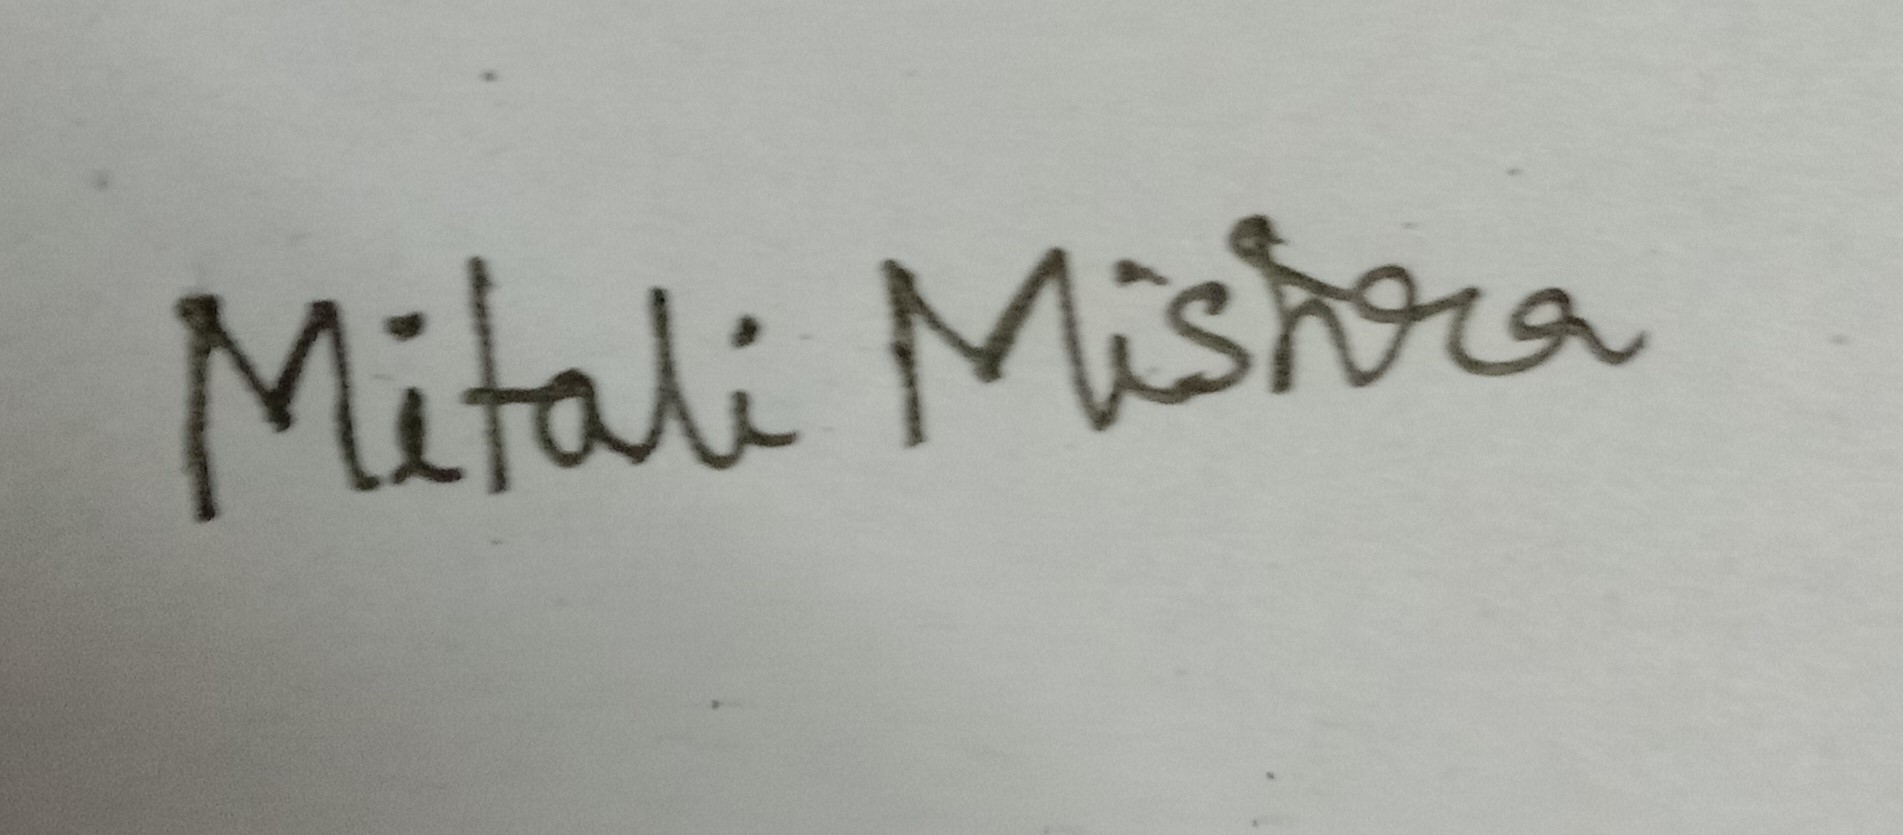 Mitali Mishra